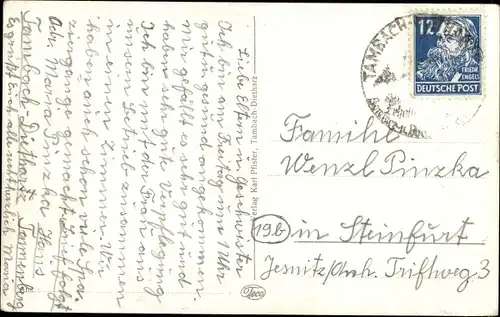 Liebe Eltern u. Geschwister
Ich bin am Freitag um 1 Uhr
gutun gesund angekommen
mir gefällt es sehr gut und
haben sehr gute Verpflegung
Ich bin mit der Frau aus
unsern Betrieb zusammen
in einem Zimmer. Wir
haben auch schon viele Spa-
ziergänge gemacht. Brief folgt
Adr. Maria Pinzka Haus
Tannenberg
Tambach-Dietharz
Es grüßt Euch alle recht herzlich Maria
Verlag Karl Pfister, Tambach-Dietharz
Foco
TAMBACH-
12
FRIEDR.
ENGELS
DEUTSCHE POST
Familie
Wenzl Pinzka
19b in Steinfurt
Jesnitz/Anh. Triftweg 3